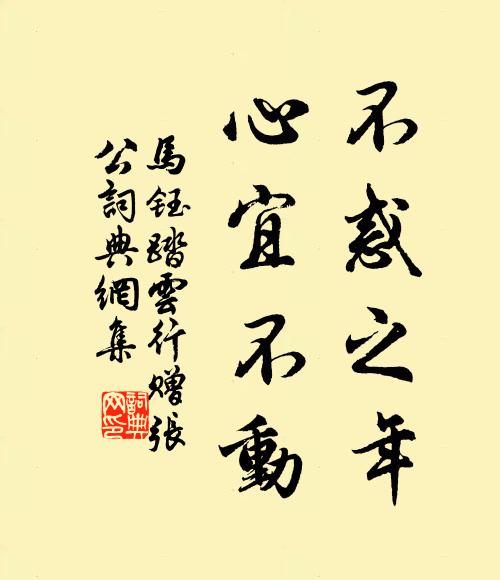 不惑之年
心宜不動
馬鈺踏雲行贈張
公詞典網集
詞典
网印